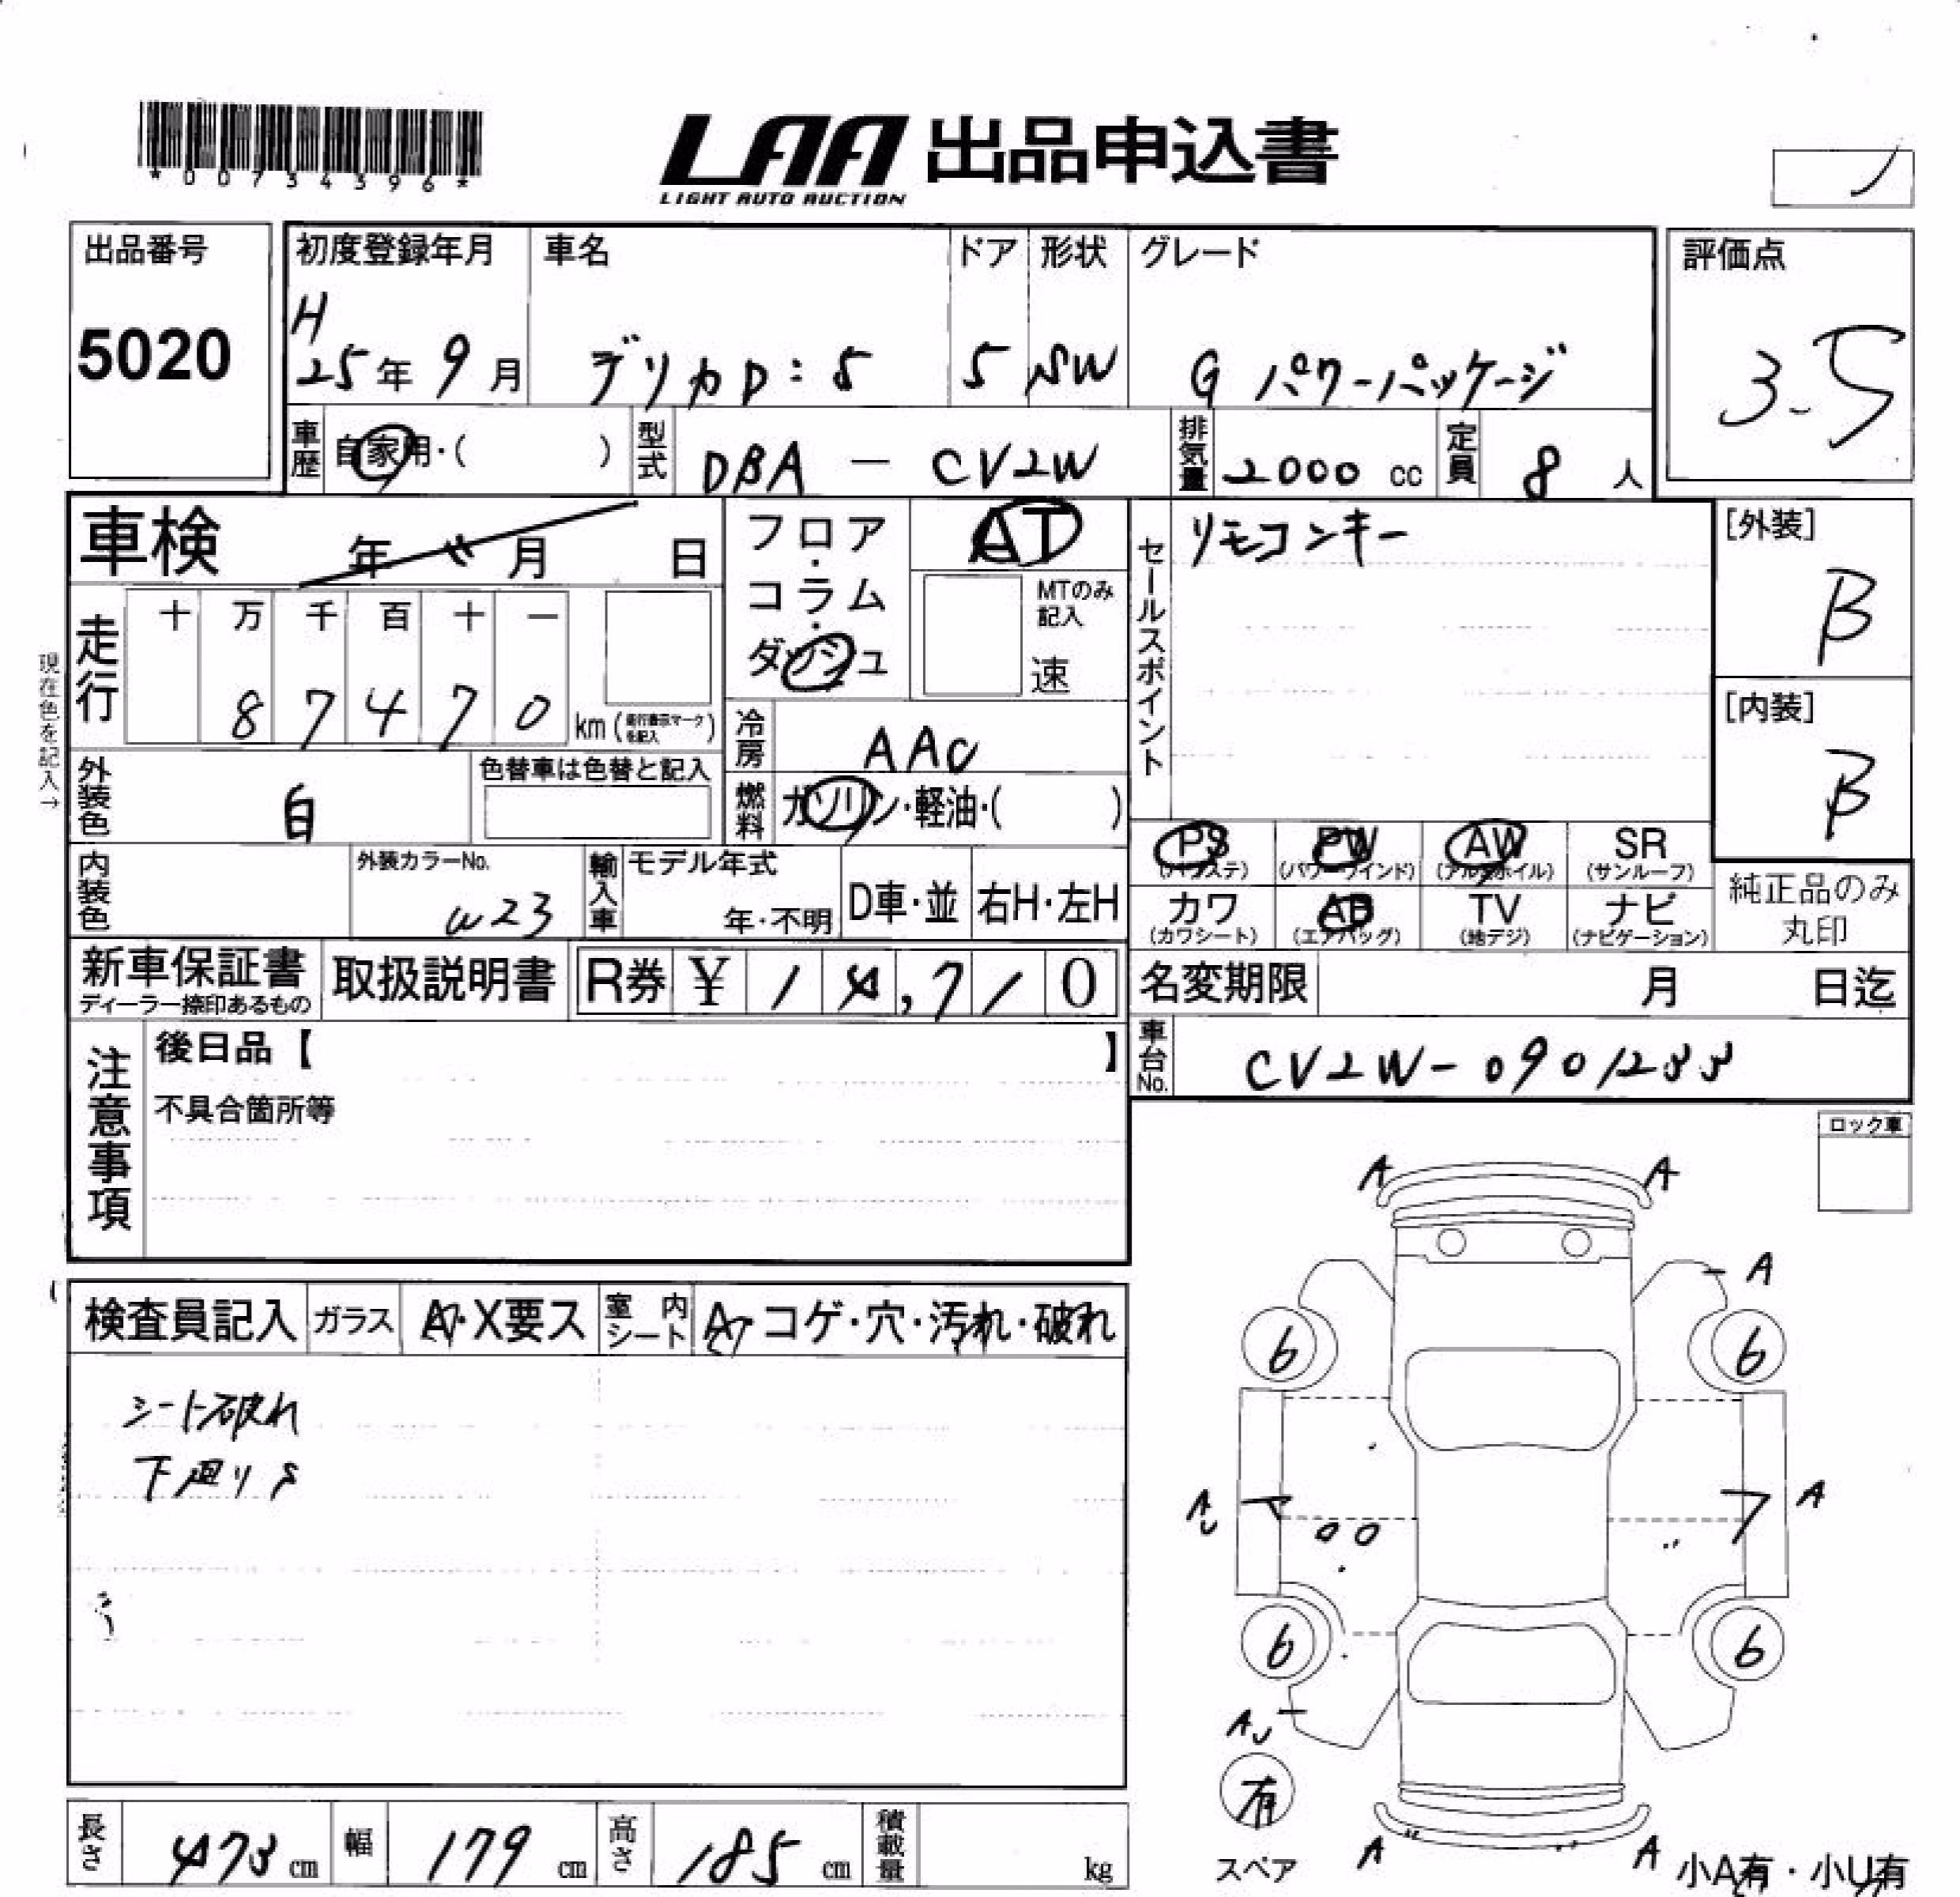 *00734396*
LAA 出品申込書
LIGHT AUTO AUCTION
出品番号 初度登録年月 車名 ドア 形状 グレード 評価点
5020 H 25年 9月 デリカD:5 5 SW G パワーパッケージ 3.5
車歴 自家用・( ) 型式 DBA - CV2W 排気量 2000 cc 定員 8 人
車検 年 月 日
フロア・コラム・ダッシュ AT
MTのみ記入 速
セールスポイント リモコンキー
[外装] B
[内装] B
現在色を記入→
走行 十 万 千 百 十 一
8 7 4 7 0 km (走行表示マークを記入)
冷房 AAC
外装色 白 色替車は色替と記入
燃料 ガソリン・軽油・( )
PS (パワステ) PW (パワーウインド) AW (アルミホイル) SR (サンルーフ)
カワ (カワシート) AB (エアバッグ) TV (地デジ) ナビ (ナビゲーション)
純正品のみ丸印
内装色 外装カラーNo. W23 輸入車 モデル年式 年・不明 D車・並 右H・左H
新車保証書 ディーラー捺印あるもの 取扱説明書 R券 ¥ 1 , 7 1 0
名変期限 月 日迄
車台No. CV2W-0901233
注意事項 後日品【 】
不具合箇所等
ロック車
検査員記入 ガラス A・X要ス 室内シート A・コゲ・穴・汚れ・破れ
シート破れ
下廻りS
A A
A
6 6
AU A
6 6
AU
有
スペア
A A
小A有・小U有
長さ 473 cm 幅 179 cm 高さ 185 cm 積載量 kg